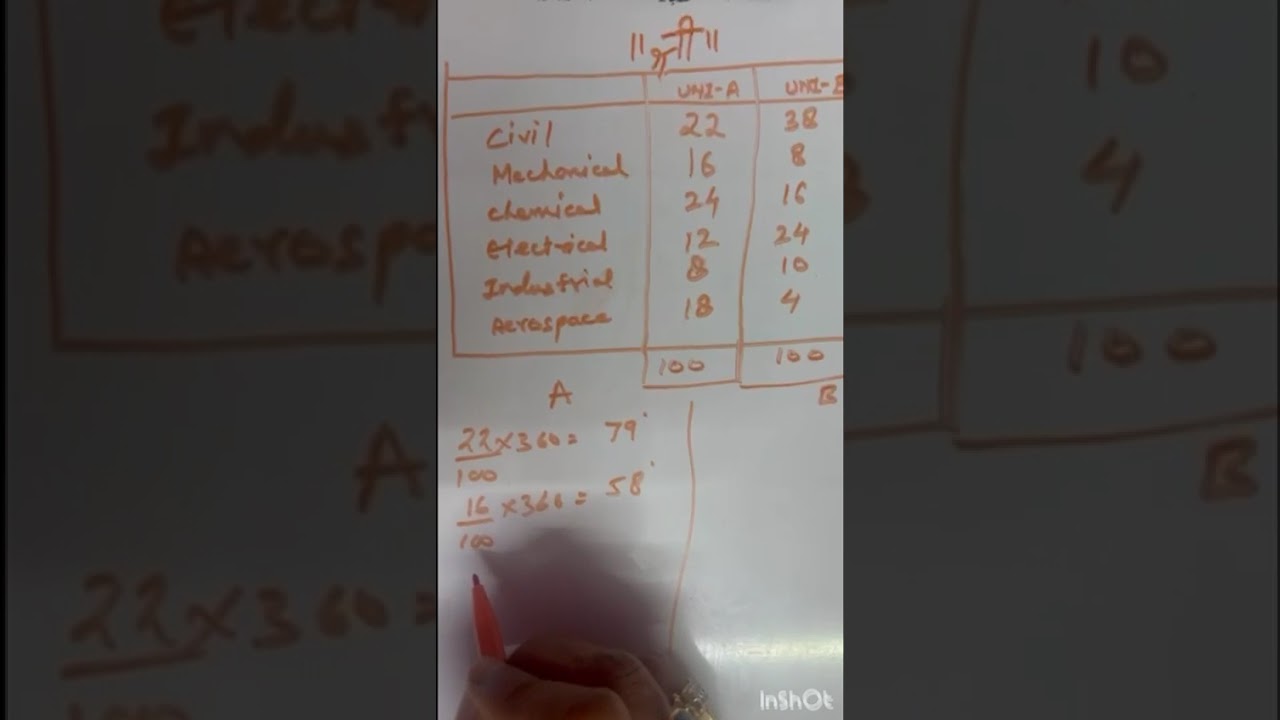 ॥ श्री ॥
UNI-A UNI-B
Civil 22 38
Mechanical 16 8
chemical 24 16
Electrical 12 24
Industrial 8 10
Aerospace 18 4
100 100
A B
22/100 × 360 = 79°
16/100 × 360 = 58°
InShOt